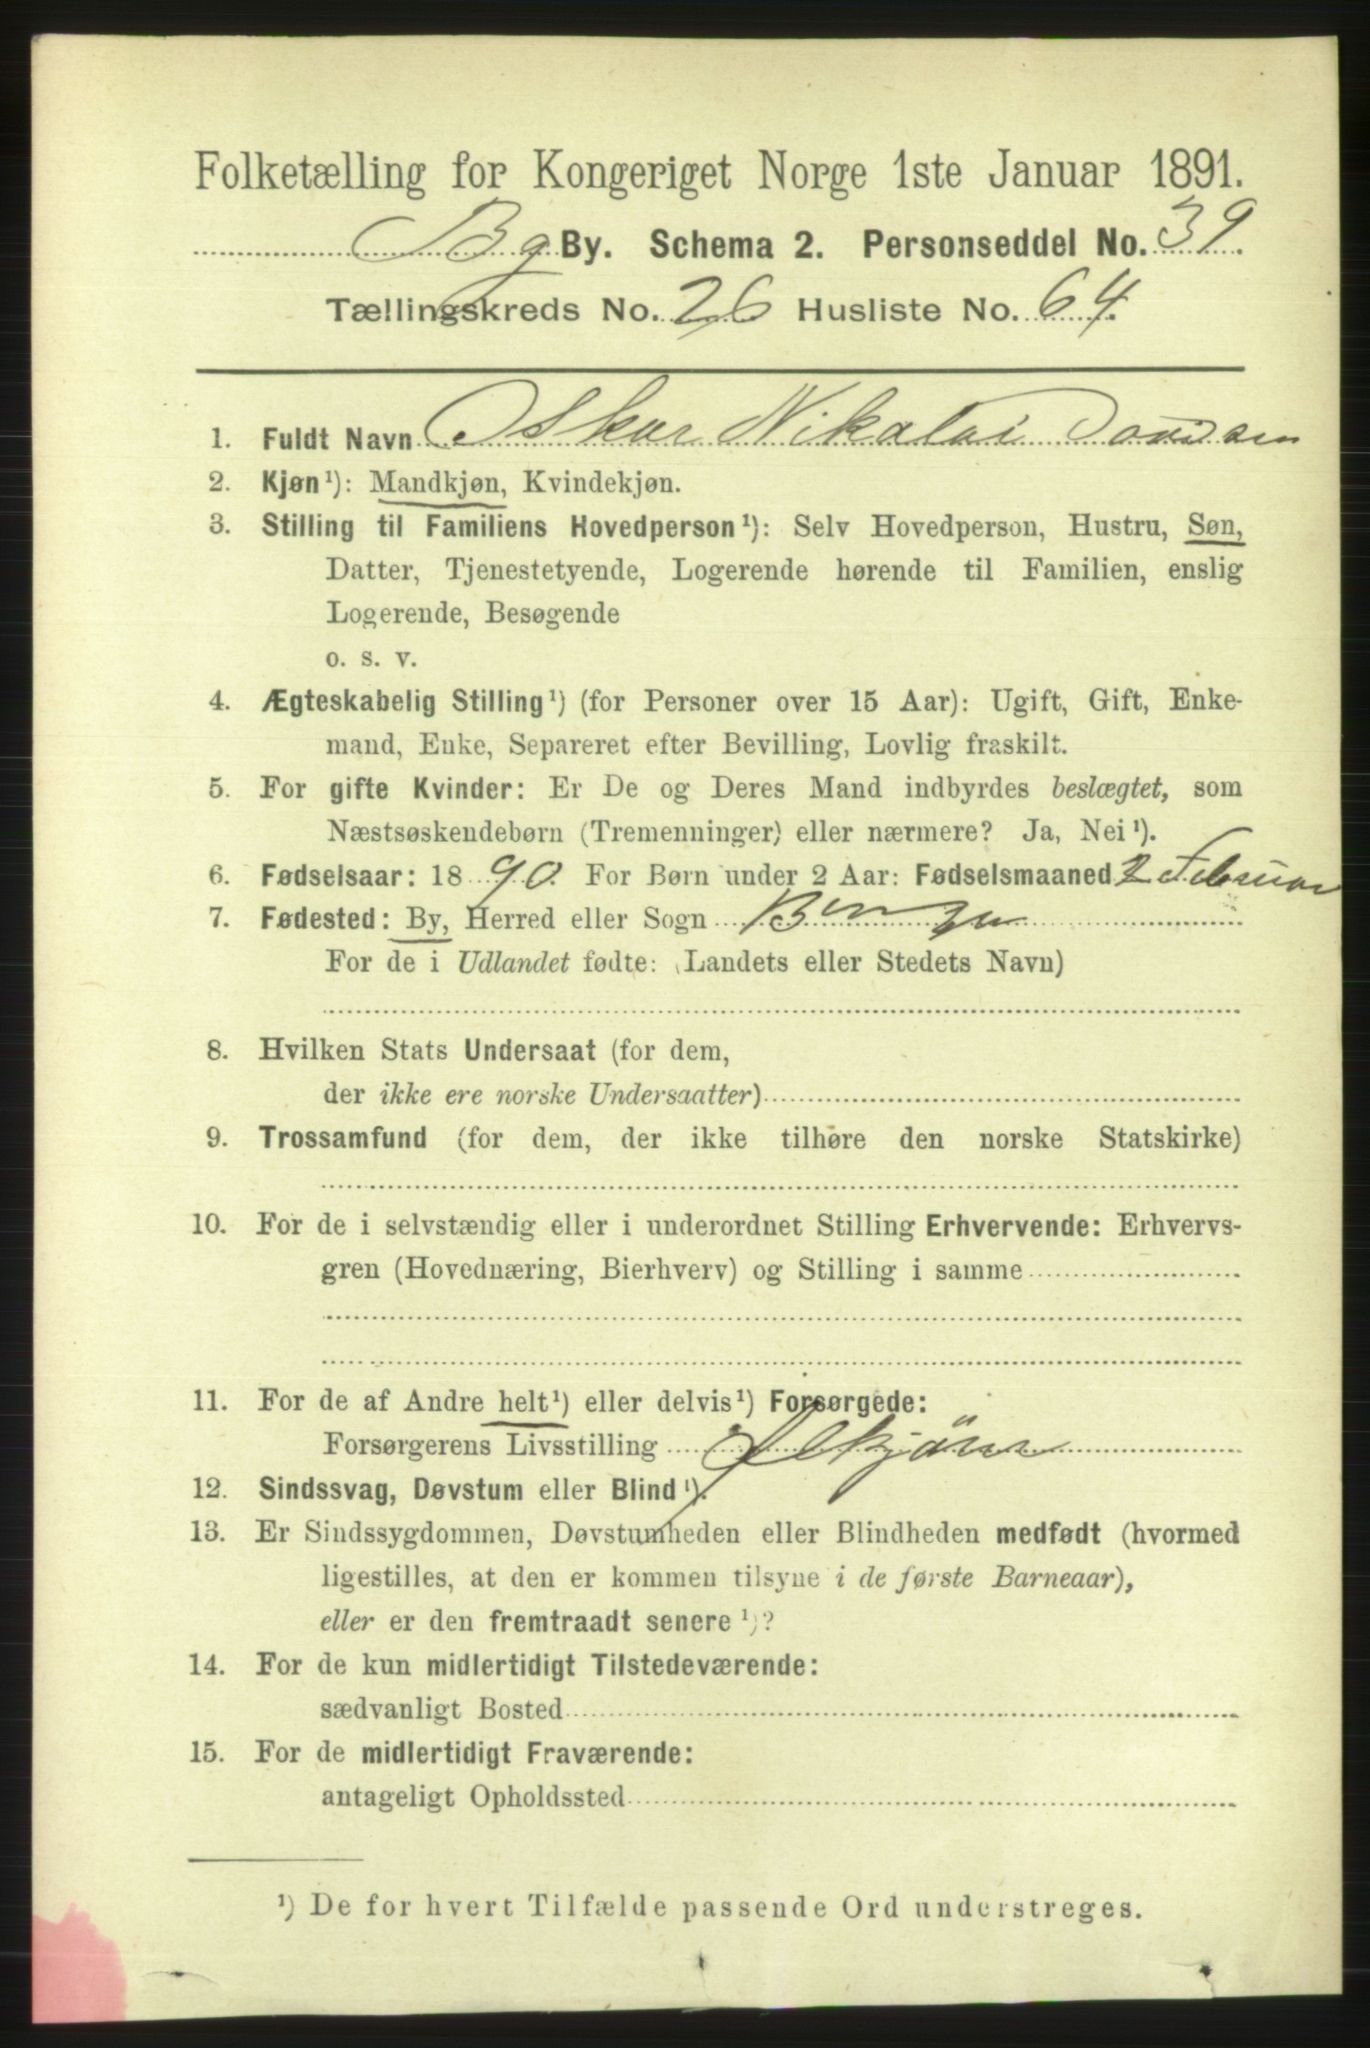 Folketælling for Kongeriget Norge 1ste Januar 1891.
Bg By. Schema 2. Personseddel No. 39.
Tællingskreds No. 26 Husliste No. 64.
1. Fuldt Navn Oskar Nikolai Davidsen
2. Kjøn¹): Mandkjøn, Kvindekjøn.
3. Stilling til Familiens Hovedperson¹): Selv Hovedperson, Hustru, Søn,
Datter, Tjenestetyende, Logerende hørende til Familien, enslig
Logerende, Besøgende
o. s. v.
4. Ægteskabelig Stilling¹) (for Personer over 15 Aar): Ugift, Gift, Enke-
mand, Enke, Separeret efter Bevilling, Lovlig fraskilt.
5. For gifte Kvinder: Er De og Deres Mand indbyrdes beslægtet, som
Næstsøskendebørn (Tremenninger) eller nærmere? Ja, Nei¹).
6. Fødselsaar: 1890. For Børn under 2 Aar: Fødselsmaaned 2 Februar
7. Fødested: By, Herred eller Sogn Bergen
For de i Udlandet fødte: (Landets eller Stedets Navn)
8. Hvilken Stats Undersaat (for dem,
der ikke ere norske Undersaatter)
9. Trossamfund (for dem, der ikke tilhøre den norske Statskirke)
10. For de i selvstændig eller i underordnet Stilling Erhvervende: Erhvervs-
gren (Hovednæring, Bierhverv) og Stilling i samme
11. For de af Andre helt¹) eller delvis¹) Forsørgede:
Forsørgerens Livsstilling
12. Sindssvag, Døvstum eller Blind¹).
13. Er Sindssygdommen, Døvstumheden eller Blindheden medfødt (hvormed
ligestilles, at den er kommen tilsyne i de første Barneaar),
eller er den fremtraadt senere¹)?
14. For de kun midlertidigt Tilstedeværende:
sædvanligt Bosted
15. For de midlertidigt Fraværende:
antageligt Opholdssted
¹) De for hvert Tilfælde passende Ord understreges.